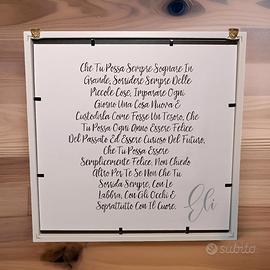 Che Tu Possa Sempre Sognare In
Grande, Sorridere Sempre Delle
Piccole Cose, Imparare Ogni
Giorno Una Cosa Nuova E
Custodirla Come Fosse Un Tesoro, Che
Tu Possa Ogni Anno Essere Felice
Del Passato Ed Essere Curioso Del Futuro,
Che Tu Possa Essere
Semplicemente Felice, Non Chiedo
Altro Per Te Se Non Che Tu
Sorrida Sempre, Con Le
Labbra, Con Gli Occhi E
Soprattutto Con Il Cuore.
Eli
subito